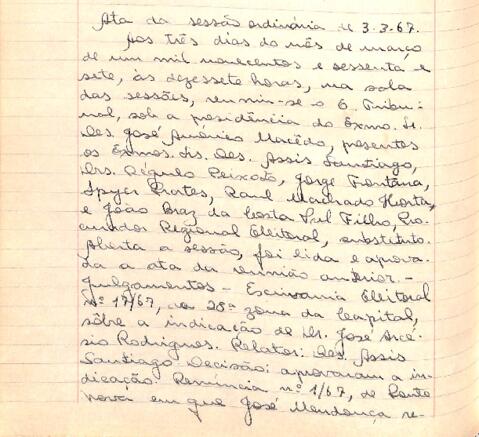 Ata da sessão ordinária de 3.3.67.
Aos três dias do mês de março
de um mil novecentos e sessenta e
sete, às dezessete horas, na sala
das sessões, reuniu-se o E. Tribu-
nal, sob a presidência do Exmo. Sr.
Des. José Américo Macêdo, presentes
os Exmos. Srs. Des. Assis Santiago,
Drs. Régulo Peixoto, Jorge Fontana,
Spyer Prates, Raul Machado Horta,
e João Braz da Costa Val Filho, Pro-
curador Regional Eleitoral, substituto.
Aberta a sessão, foi lida e aprova-
da a ata da reunião anterior. -
Julgamentos - Escrivania Eleitoral
Nº 17/67, da 28ª zona da Capital,
sôbre a indicação de Dr. José Arcê-
sio Rodrigues. Relator: Des. Assis
Santiago. Decisão: aprovaram a in-
dicação. Renúncia nº 1/67, de Ponte
Nova em que José Mendonça re-